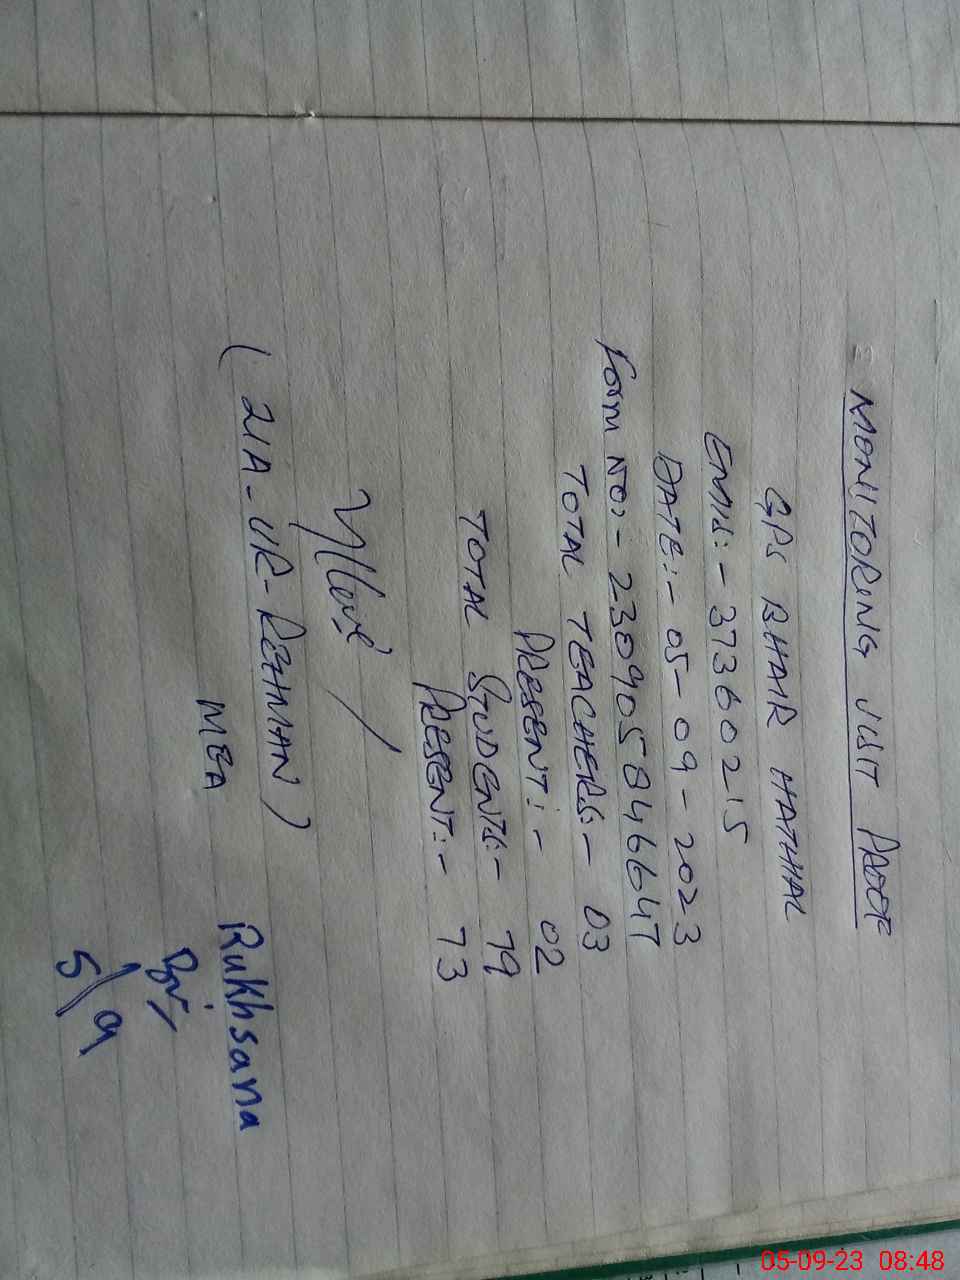 MONITORING VISIT PROOF
GPS BHAIR HATHIAL
EMIS:- 37360215
DATE:- 05-09-2023
Form NO:- 230905846647
TOTAL TEACHERS:- 03
PRESENT:- 02
TOTAL STUDENTS:- 79
PRESENT:- 73
(ZIA-UR-REHMAN)
MEA
Rukhsana
5/9
05-09-23 08:48